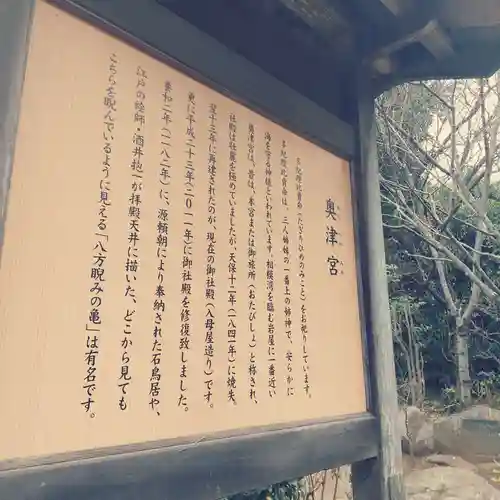 奥津宮
多紀理比賣命(たぎりひめのみこと)をお祀りしています。
多紀理比賣命は、三人姉妹の一番上の姉神で、安らかに
海を守る神様といわれています。相模湾を臨む岩屋に一番近い
奥津宮は、昔は、本宮または御旅所(おたびしょ)と称され、
社殿は壮麗を極めていましたが、天保十二年(一八四一年)に焼失。
翌十三年に再建されたのが、現在の御社殿(入母屋造り)です。
更に平成二十三年(二〇一一年)に御社殿を修復致しました。
養和二年(一一八二年)に、源頼朝により奉納された石鳥居や、
江戸の絵師・酒井抱一が拝殿天井に描いた、どこから見ても
こちらを睨んでいるように見える「八方睨みの亀」は有名です。